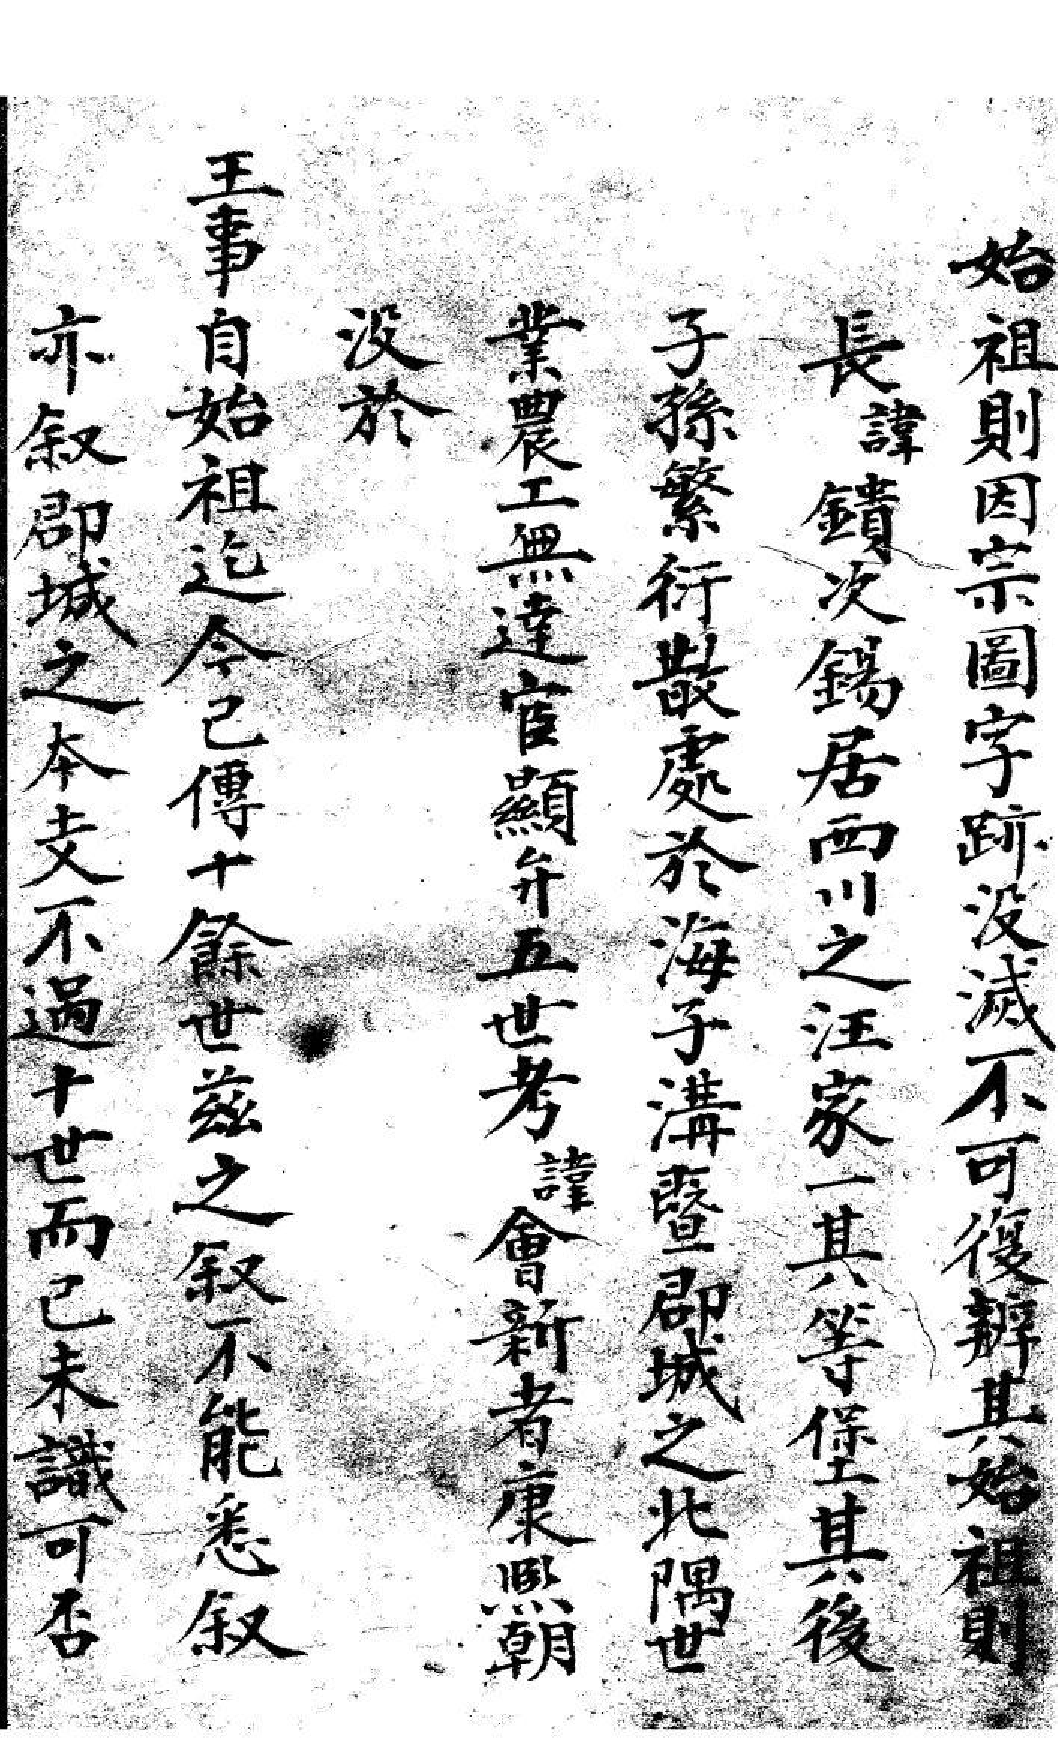 始祖則因宗圖字跡没滅不可復辨其始祖則
長諱鐀次錫居西川之汪家一其等堡其後
子孫繁衍散處於海子溝暨郡城之北隅世
業農工無達宦顯弁五世考諱會新者康熙朝
没於
王事自始祖迄今已傳十餘世兹之叙不能悉叙
亦叙郡城之本支不過十世而已未識可否